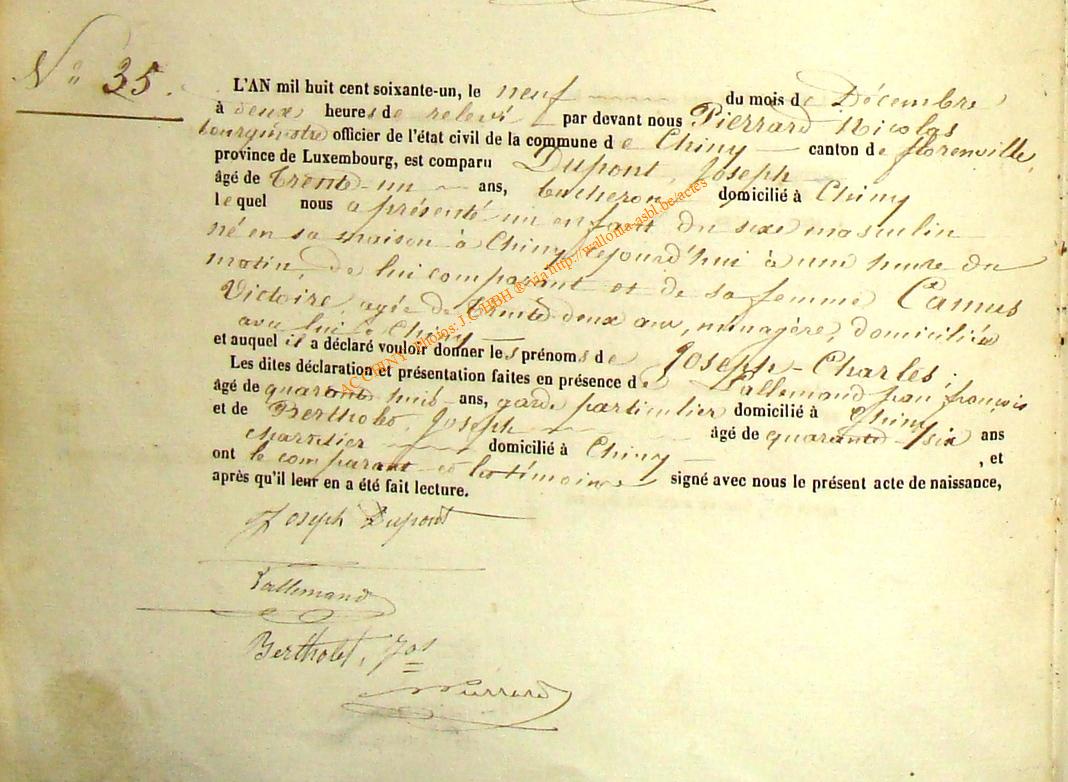 N° 35.
L'AN mil huit cent soixante-un, le neuf du mois de Décembre
à deux heures de relevé par devant nous Pierrard Nicolas
bourgmestre officier de l'état civil de la commune de Chiny canton de florenville,
province de Luxembourg, est comparu Dupont, Joseph
âgé de trente-un ans, bucheron domicilié à Chiny
lequel nous a présenté un enfant du sexe masculin
né en sa maison à Chiny cejourd'hui à une heure du
matin de lui comparant et de sa femme Camus
Victoire, agée de trente-deux ans, ménagère, domiciliée
avec lui à Chiny
et auquel il a déclaré vouloir donner les prénoms de Joseph-Charles;
Les dites déclaration et présentation faites en présence de Lallemand jean françois
âgé de quarante huit ans, garde particulier domicilié à Chiny
et de Bertholet, Joseph âgé de quarante-six ans
charretier domicilié à Chiny , et
ont le comparant et les témoins signé avec nous le présent acte de naissance,
après qu'il leur en a été fait lecture.
Joseph Dupont
Lallemand
Bertholet, Jos
Pierrard
ACCHINY Photos: J.C. HBH ® via http://wallonia-asbl.be/actes